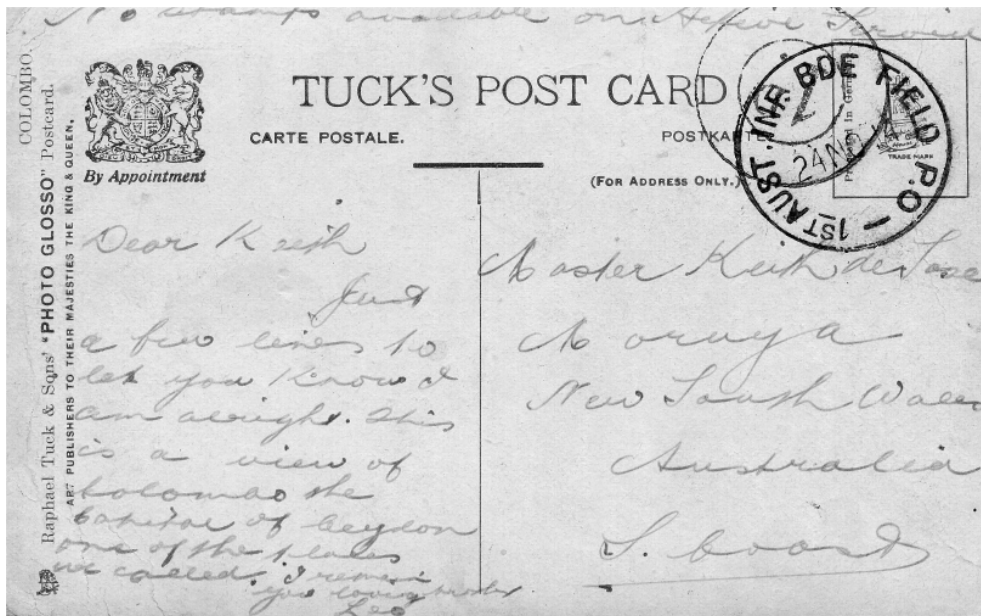 No stamps available on Active Service
COLOMBO.
Raphael Tuck & Sons' "PHOTO GLOSSO" Postcard.
ART PUBLISHERS TO THEIR MAJESTIES THE KING & QUEEN.
By Appointment
TUCK'S POST CARD
CARTE POSTALE.
POSTKARTE
(FOR ADDRESS ONLY.)
Printed in
TRADE MARK
1ST AUST. INF. BDE FIELD P.O
24 NO
Dear Keith
Just
a few lines to
let you know I
am alright. This
is a view of
Kolombo the
Capital of Ceylon
one of the places
we called. I remain
your loving brother
Leo
Master Keith de
Moruya
New South Wales
Australia
S. Coast